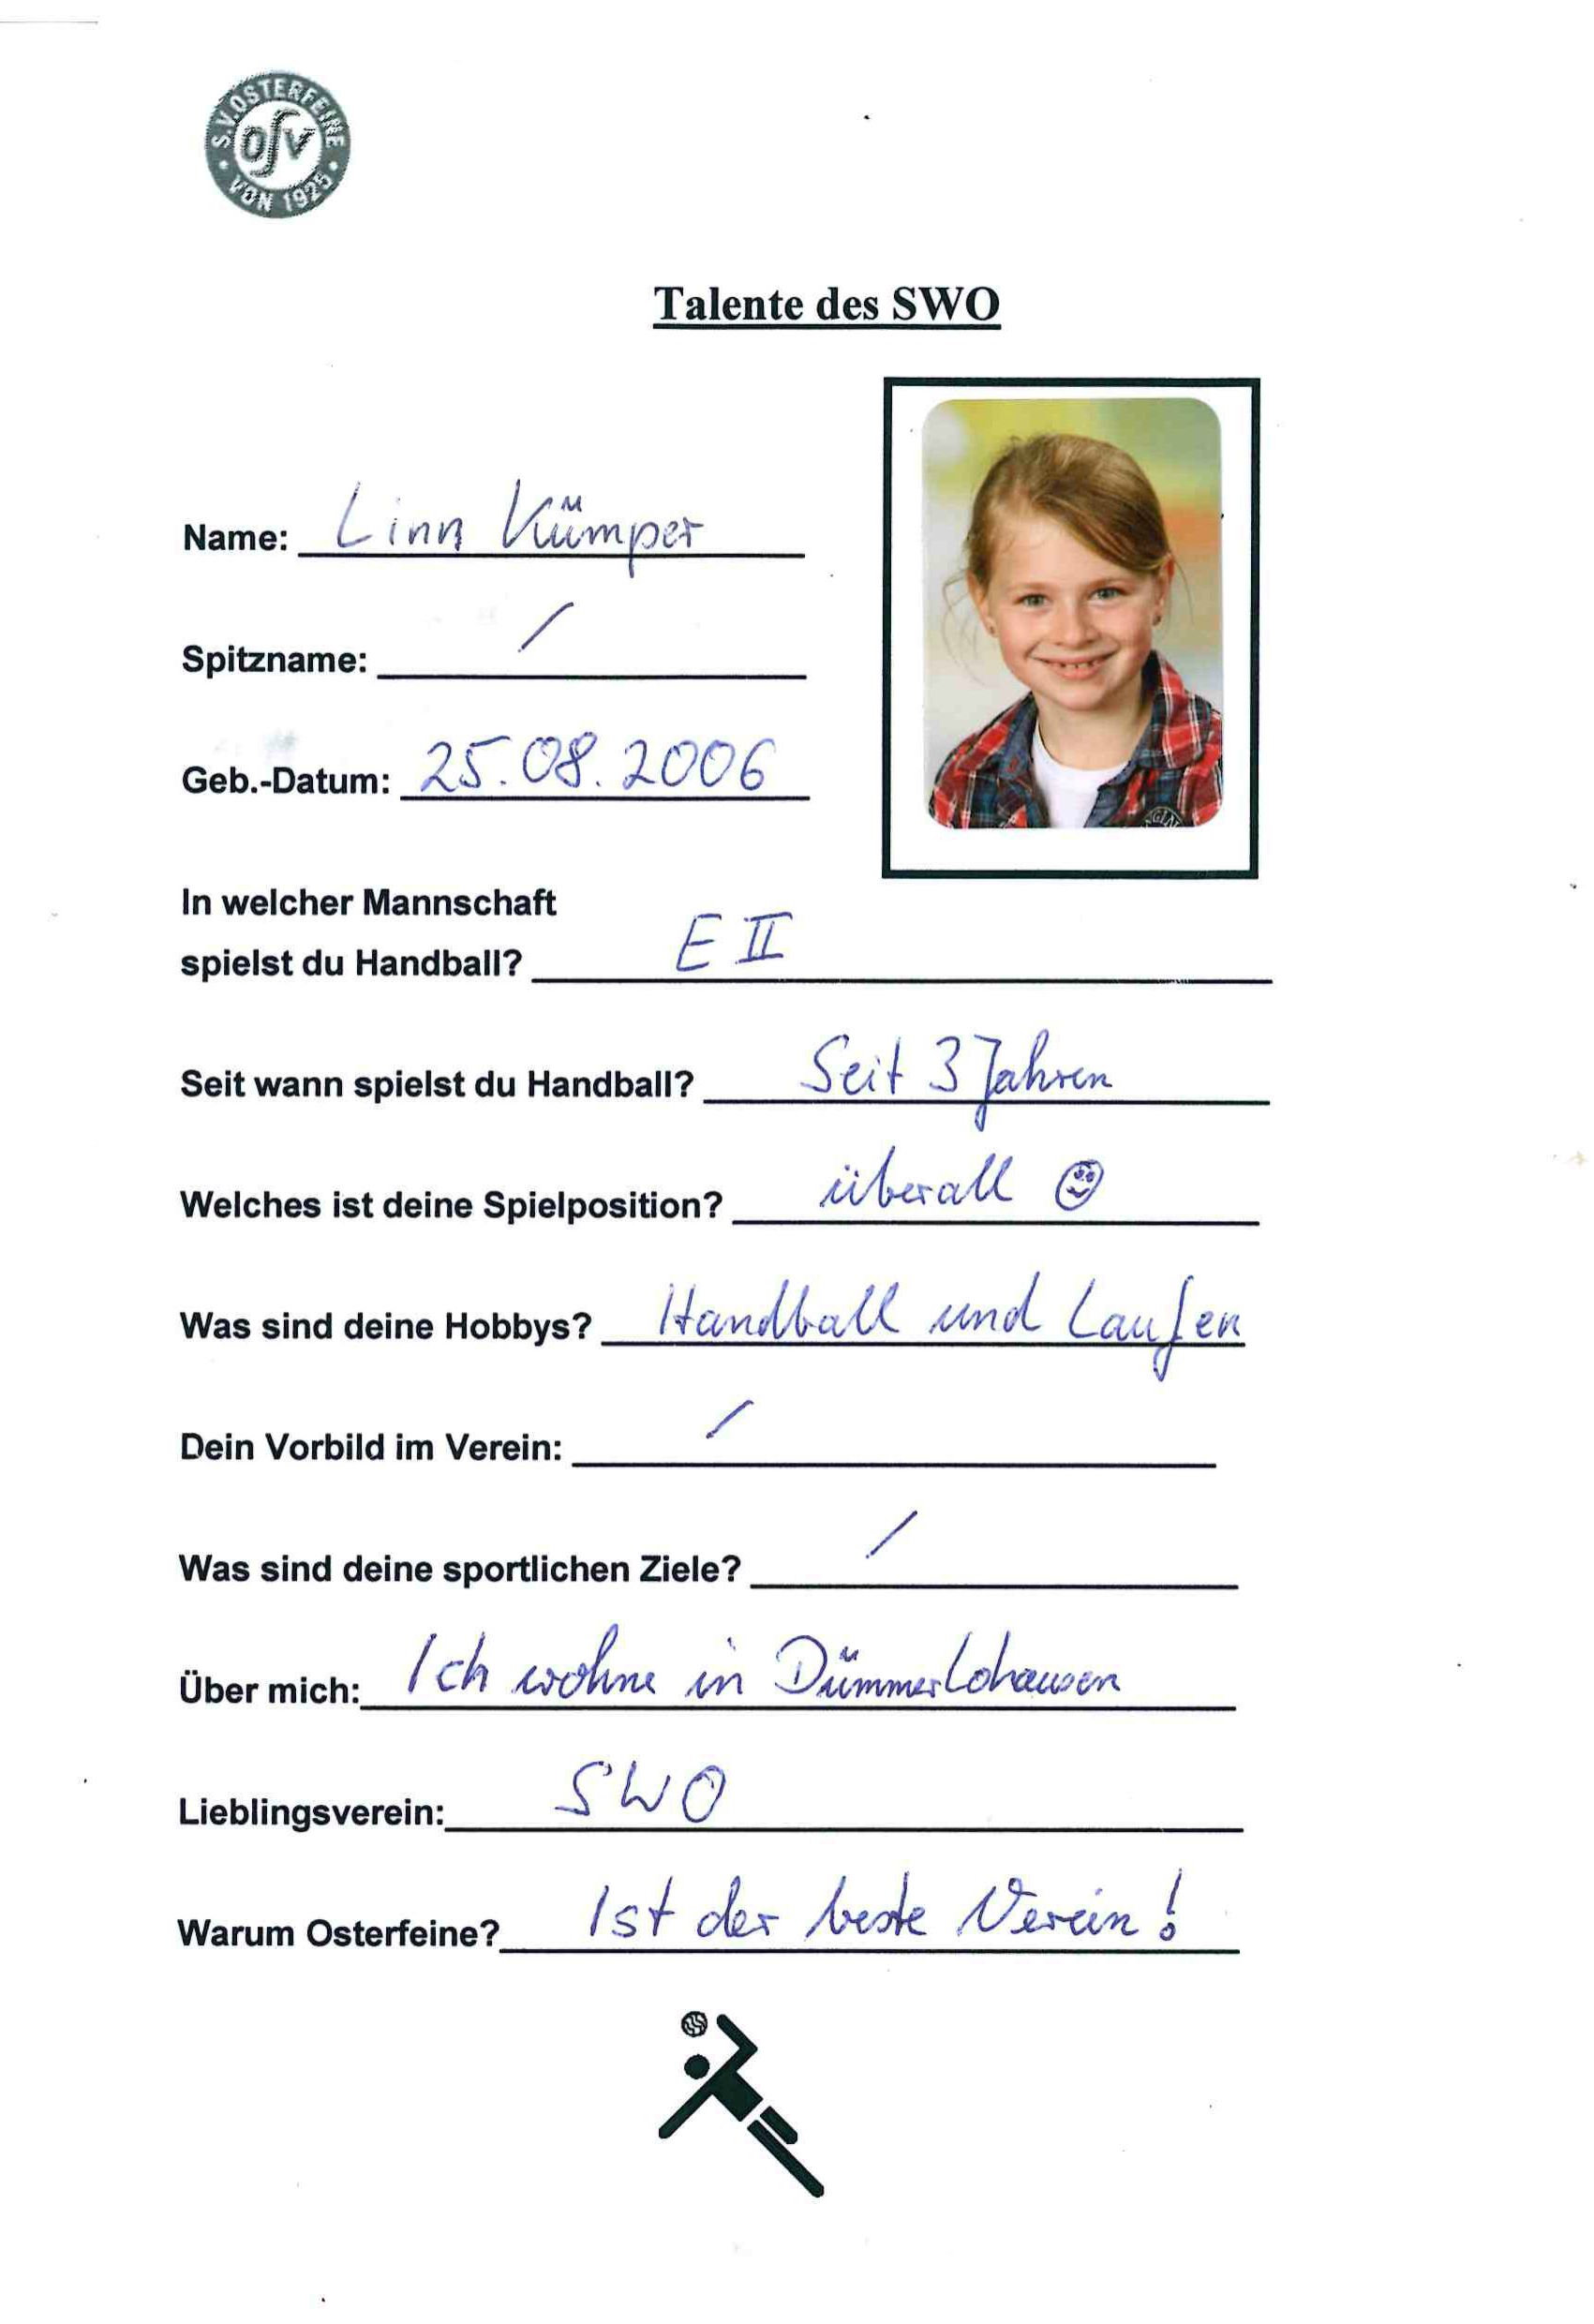 S.V. OSTERFEINE
OSV
VON 1925
Talente des SWO
Name: Linn Kümper
Spitzname: /
Geb.-Datum: 25.08.2006
In welcher Mannschaft
spielst du Handball? E II
Seit wann spielst du Handball? Seit 3 Jahren
Welches ist deine Spielposition? überall ☺
Was sind deine Hobbys? Handball und Laufen
Dein Vorbild im Verein: /
Was sind deine sportlichen Ziele? /
Über mich: Ich wohne in Dümmerlohausen
Lieblingsverein: SWO
Warum Osterfeine? Ist der beste Verein!